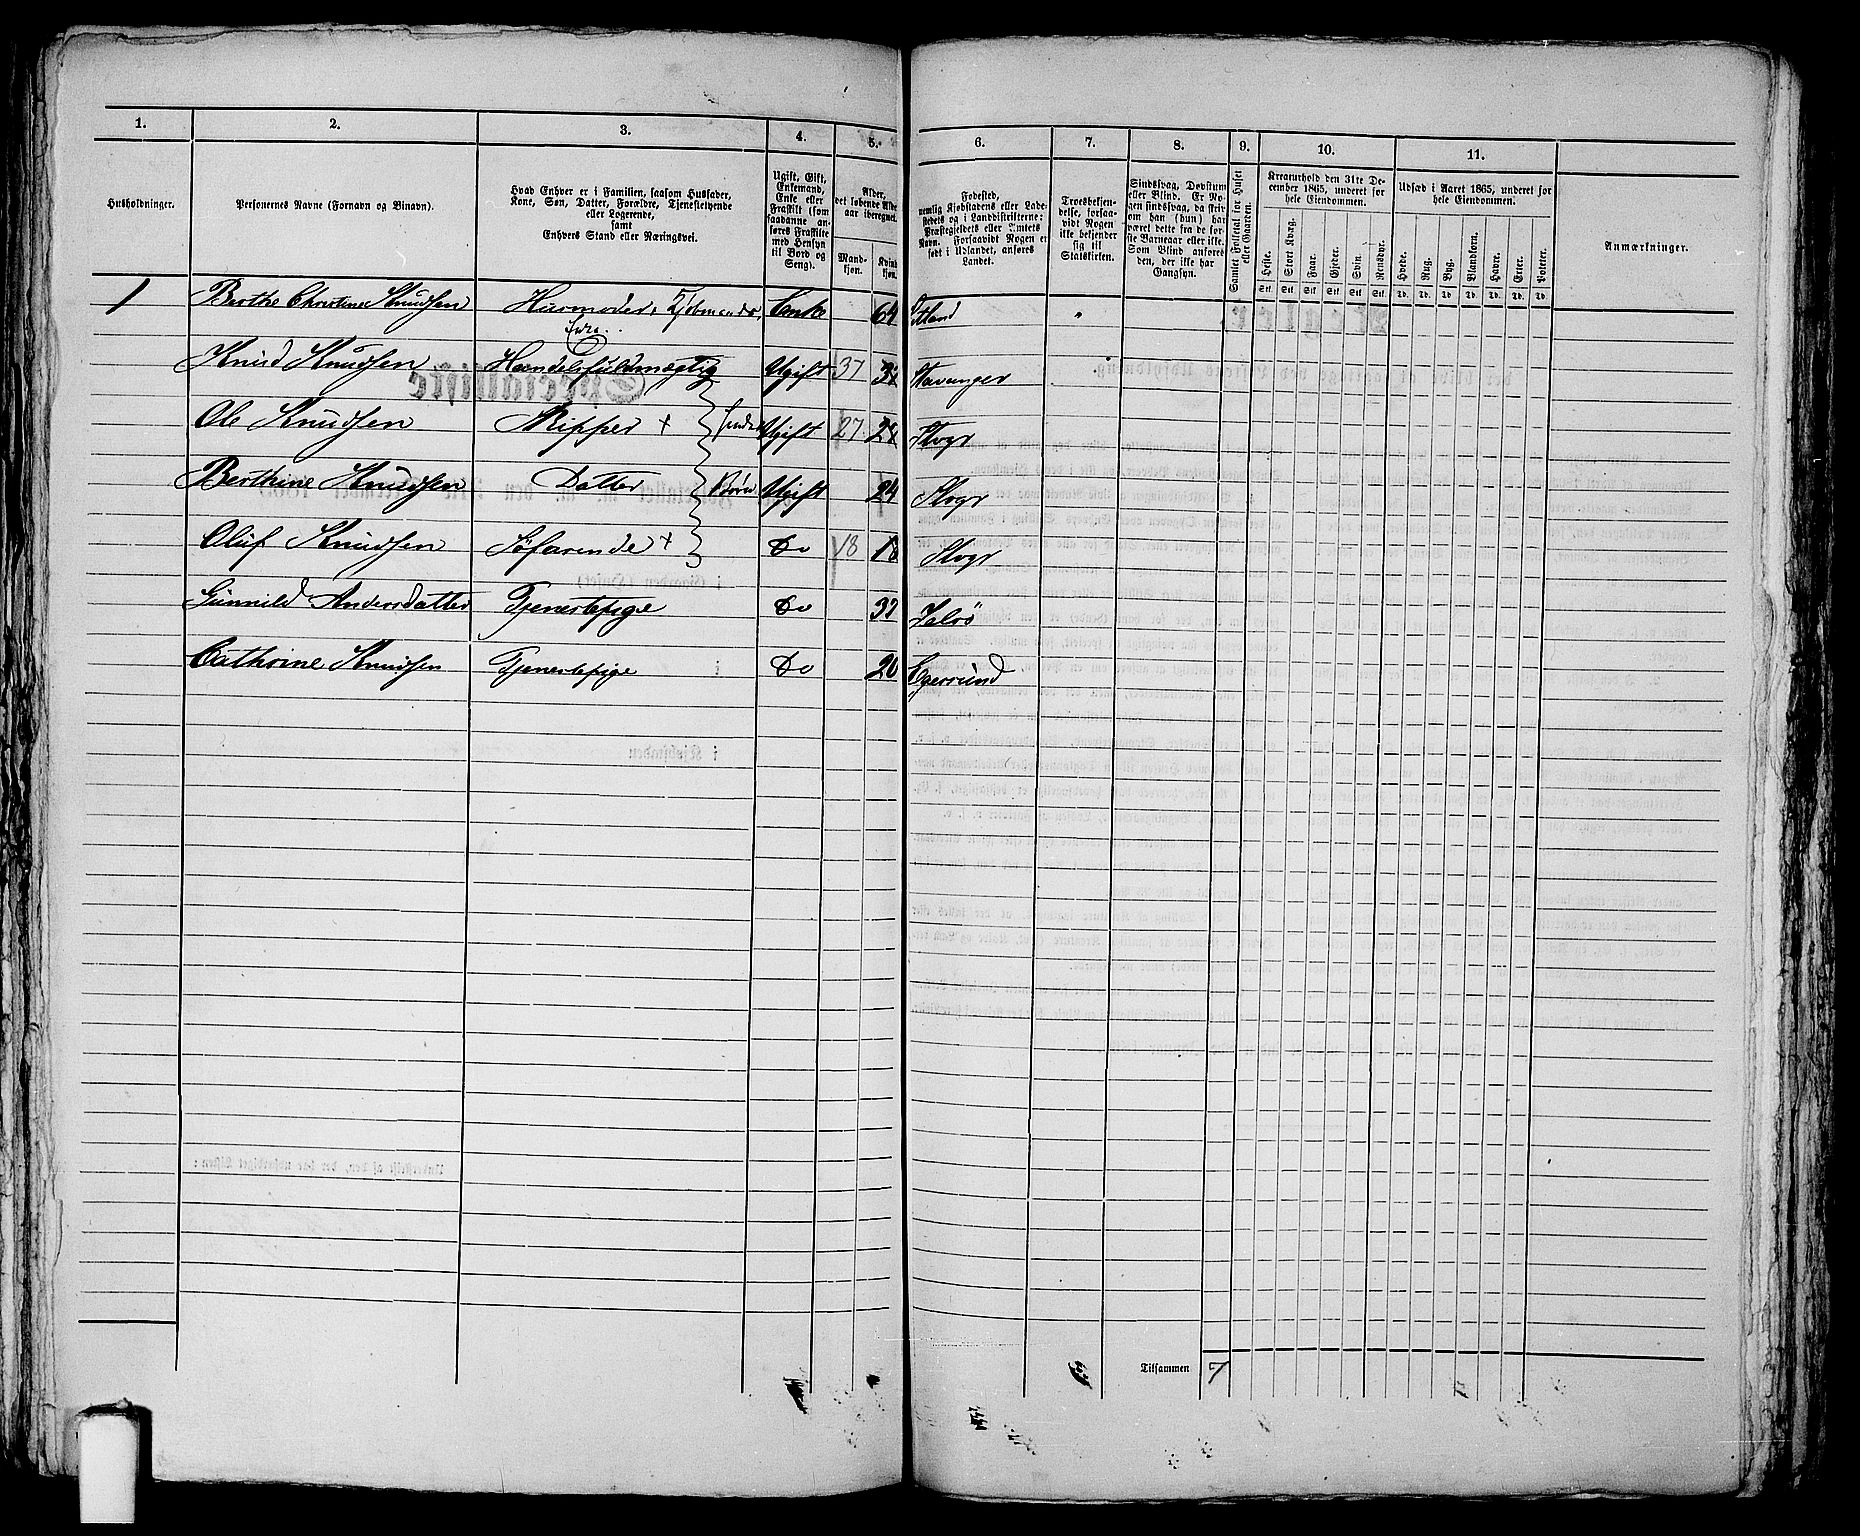 1. 2. 3. 4. 5. 6. 7. 8. 9. 10. 11.
Husholdninger.
Personernes Navne (Fornavn og Binavn).
Hvad Enhver er i Familien, saasom Husfader,
Kone, Søn, Datter, Forældre, Tjenestetyende
eller Logerende,
samt
Enhvers Stand eller Næringsvei.
Ugift, Gift,
Enkemand,
Enke eller
Fraskilt (som
saadanne an-
føres Fraskilte
med Hensyn
til Bord og
Seng).
Alder,
det løbende Alders-
aar iberegnet.
Mand-
kjøn.
Kvinde-
kjøn.
Fødested,
nemlig Kjøbstadens eller Lade-
stedets og i Landdistrikterne:
Præstegjeldets eller Amtets
Navn. Forsaavidt Nogen er
født i Udlandet, anføres
Landet.
Troesbekjen-
delse, forsaa-
vidt Nogen
ikke bekjender
sig til
Statskirken.
Sindssvag, Døvstum
eller Blind. Er No-
gen sindssvag, da skriv
om han (hun) har
været dette fra de før-
ste Barneaar eller ikke.
Som Blind anføres
den, der ikke har
Gangsyn.
Samlet Folketal for Huset
eller Gaarden.
Kreaturhold den 31te De-
cember 1865, underet for
hele Eiendommen.
Heste. Stort Kvæg. Faar. Gjeder. Sviin. Rensdyr.
Stk. Stk. Stk. Stk. Stk. Stk.
Udsæd i Aaret 1865, underet for
hele Eiendommen.
Hvede. Rug. Byg. Blandkorn. Havre. Erter. Poteter.
Td. Td. Td. Td. Td. Td. Td.
Anmærkninger.
1 Berthe Christine Knudsen Husmoder, Kjøbmands Enke 64
Knud Knudsen Handelsfuldmægtig Ugift 37 37 Stavanger
Ole Knudsen Skipper + Ugift 27 27 Stvgr
Berthine Knudsen Datter Børn Ugift 24 Stvgr
Oluf Knudsen Søfarende + Do 18 18 Stvgr
Gunnild Andersdatter Tjenestepige Do 37 Jelsø
Cathrine Knudsen Tjenestepige Do 20 Egersund
Tilsammen 7